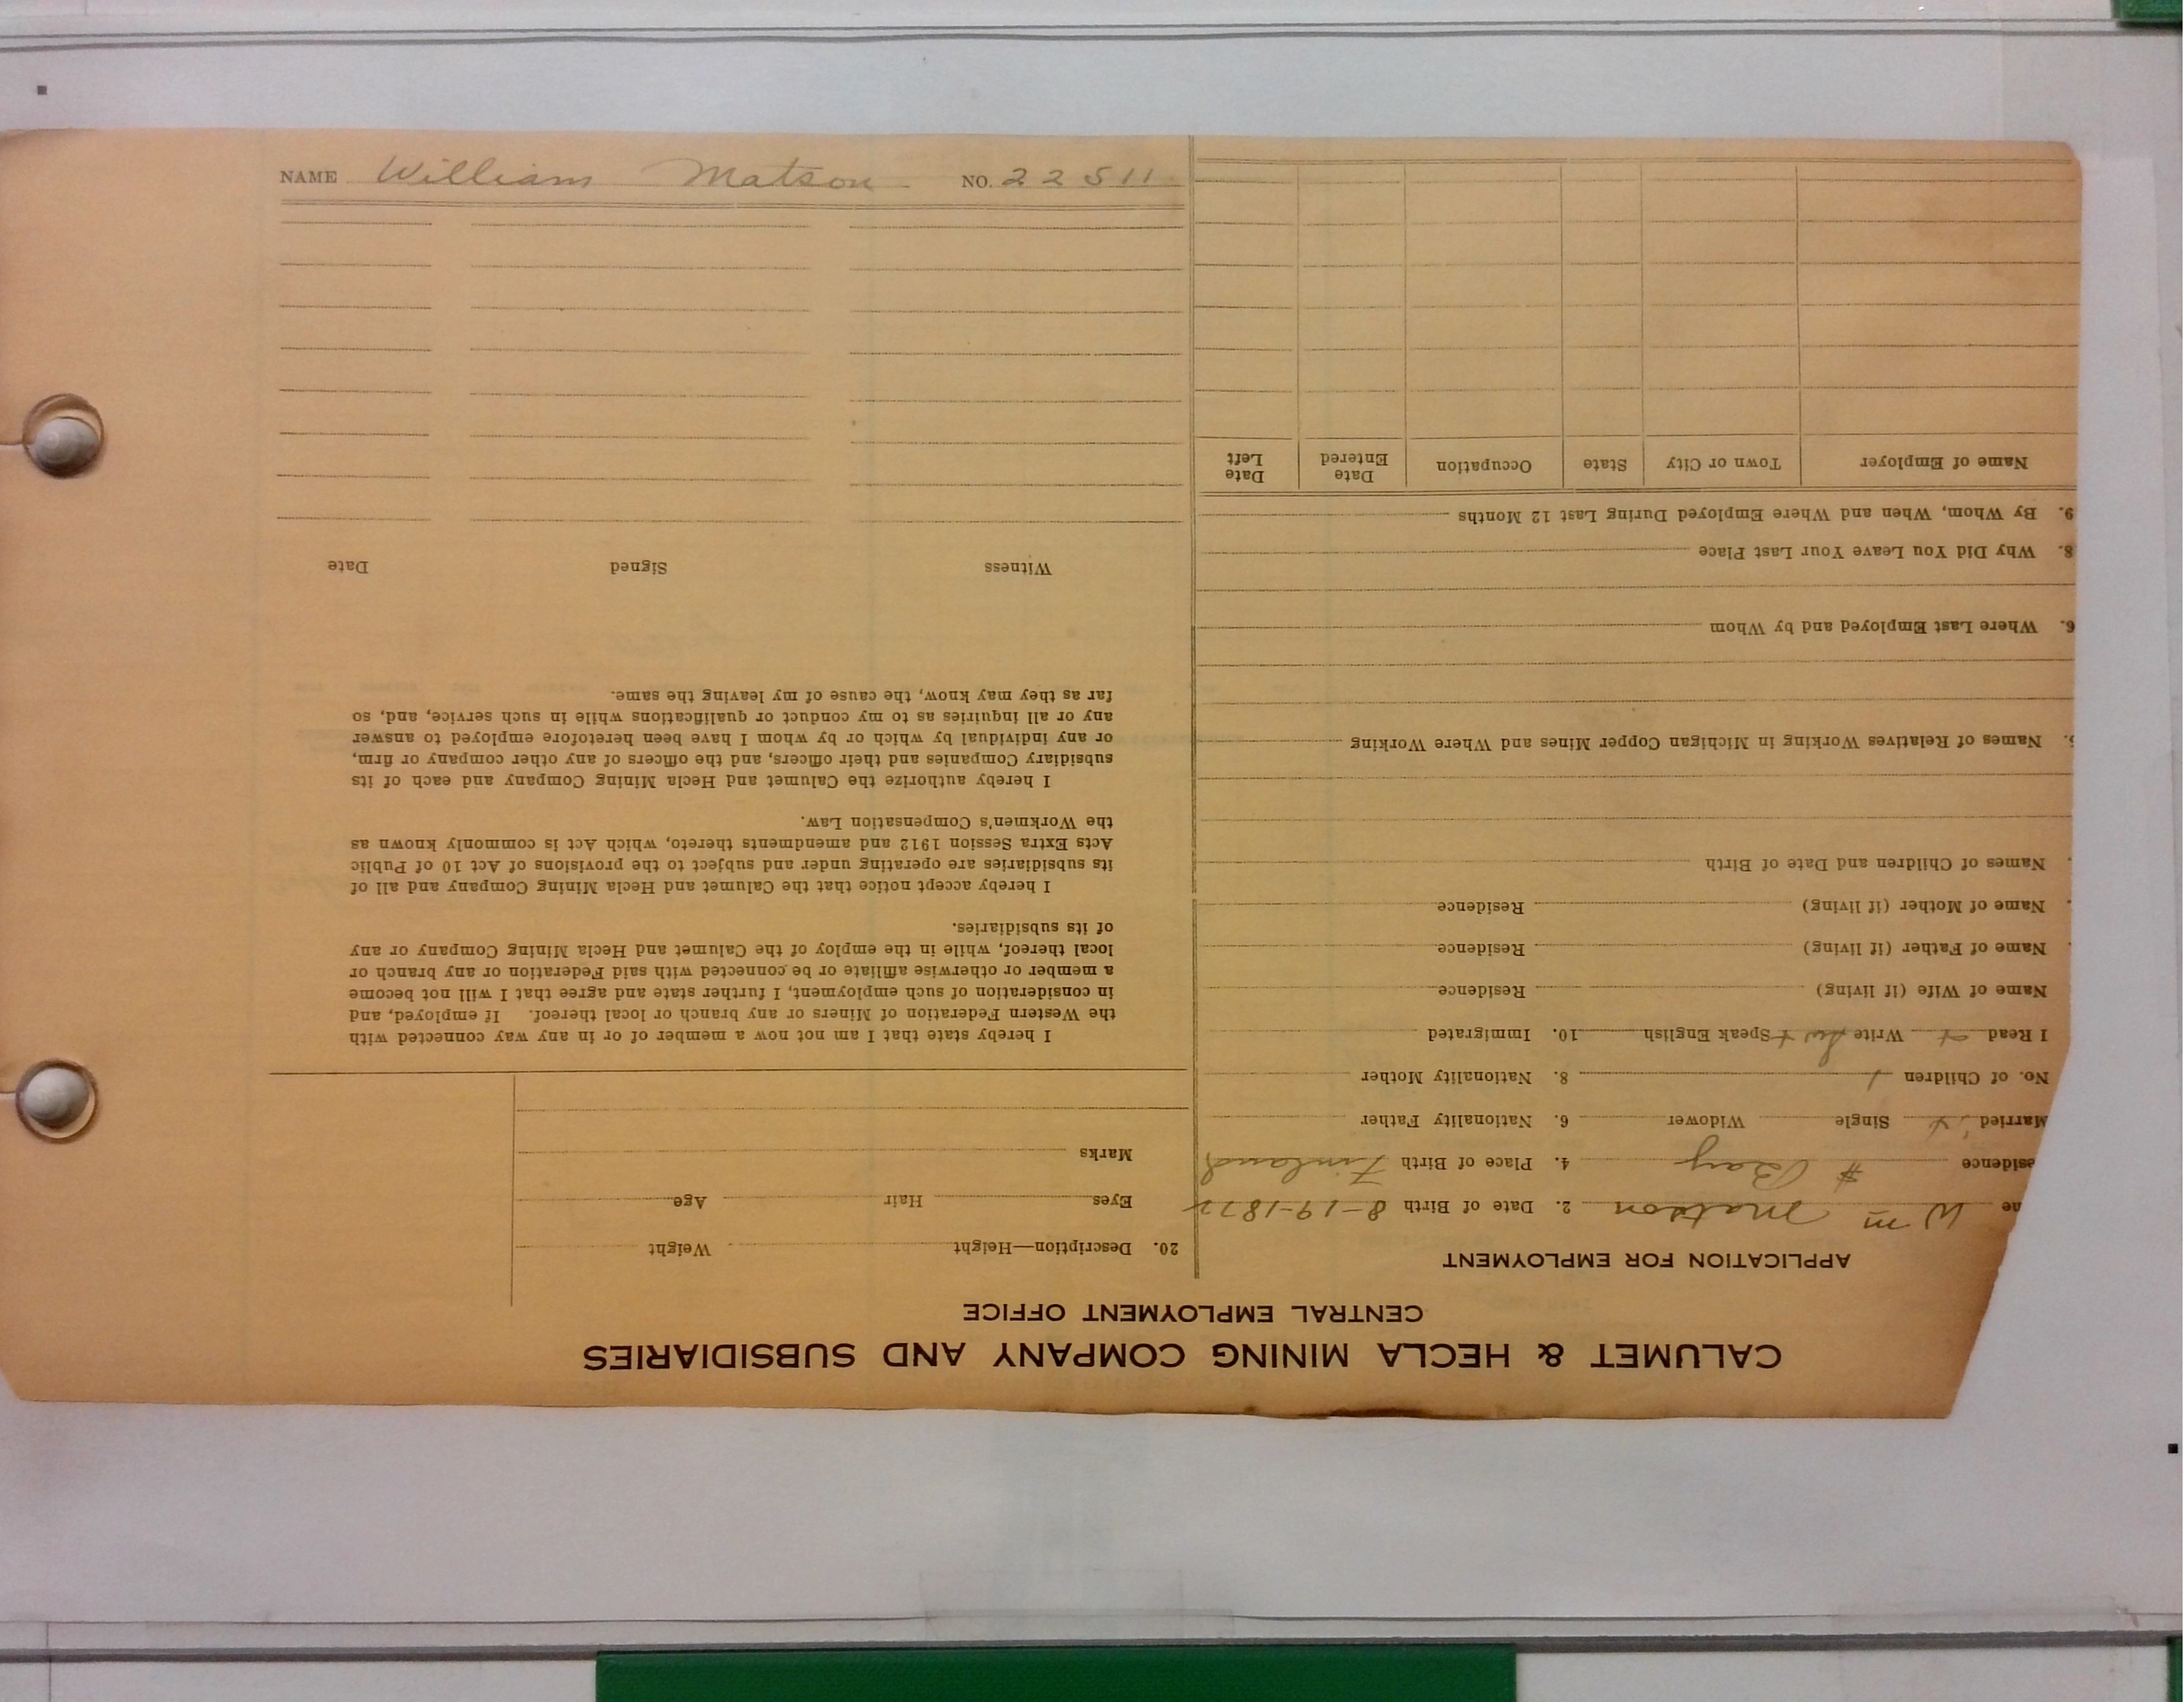 NAME William Matson NO. 22511
CALUMET & HECLA MINING COMPANY AND SUBSIDIARIES
CENTRAL EMPLOYMENT OFFICE
APPLICATION FOR EMPLOYMENT
me Wm Matson 2. Date of Birth 8-19-1872
esidence # Bay 4. Place of Birth Finland
Married x Single Widower 6. Nationality Father
No. of Children 1 8. Nationality Mother
I Read Write Speak English 10. Immigrated
Name of Wife (if living) Residence
Name of Father (if living) Residence
Name of Mother (if living) Residence
Names of Children and Date of Birth
5. Names of Relatives Working in Michigan Copper Mines and Where Working
6. Where Last Employed and by Whom
8. Why Did You Leave Your Last Place
9. By Whom, When and Where Employed During Last 12 Months
Name of Employer Town or City State Occupation Date Entered Date Left
20. Description—Height Weight
Eyes Hair Age
Marks
I hereby state that I am not now a member of or in any way connected with
the Western Federation of Miners or any branch or local thereof. If employed, and
in consideration of such employment, I further state and agree that I will not become
a member or otherwise affiliate or be connected with said Federation or any branch or
local thereof, while in the employ of the Calumet and Hecla Mining Company or any
of its subsidiaries.
I hereby accept notice that the Calumet and Hecla Mining Company and all of
its subsidiaries are operating under and subject to the provisions of Act 10 of Public
Acts Extra Session 1912 and amendments thereto, which Act is commonly known as
the Workmen's Compensation Law.
I hereby authorize the Calumet and Hecla Mining Company and each of its
subsidiary Companies and their officers, and the officers of any other company or firm,
or any individual by which or by whom I have been heretofore employed to answer
any or all inquiries as to my conduct or qualifications while in such service, and, so
far as they may know, the cause of my leaving the same.
Witness Signed Date